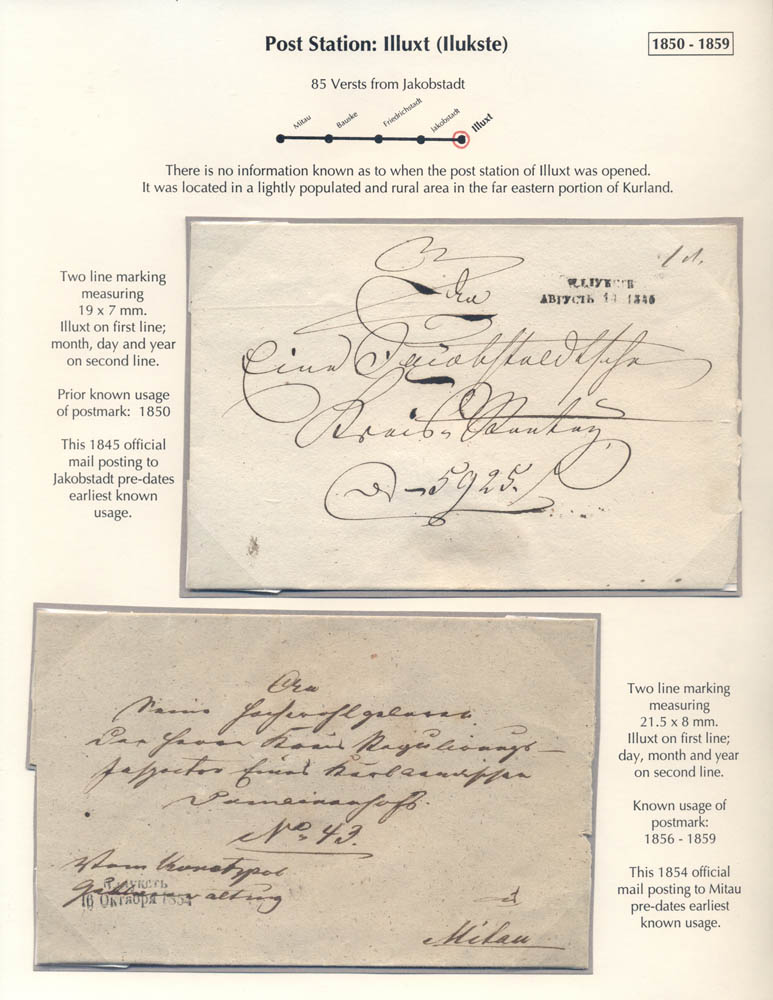 Post Station: Illuxt (Ilukste)
1850 - 1859
85 Versts from Jakobstadt
Mitau Bauske Friedrichstadt Jakobstadt Illuxt
There is no information known as to when the post station of Illuxt was opened.
It was located in a lightly populated and rural area in the far eastern portion of Kurland.
Two line marking
measuring
19 x 7 mm.
Illuxt on first line;
month, day and year
on second line.
Prior known usage
of postmark: 1850
This 1845 official
mail posting to
Jakobstadt pre-dates
earliest known
usage.
An
АВГУСТЬ 14
Eine Jacobstadtsche
Kreis
5925.
An
Seine Hochwohlgeboren
Den Herrn Kreis Regulirungs-
Inspector Eines Kurländischen
Domainenhofs.
No 43.
Vom
16 Октября 1854
Mitau
Two line marking
measuring
21.5 x 8 mm.
Illuxt on first line;
day, month and year
on second line.
Known usage of
postmark:
1856 - 1859
This 1854 official
mail posting to Mitau
pre-dates earliest
known usage.